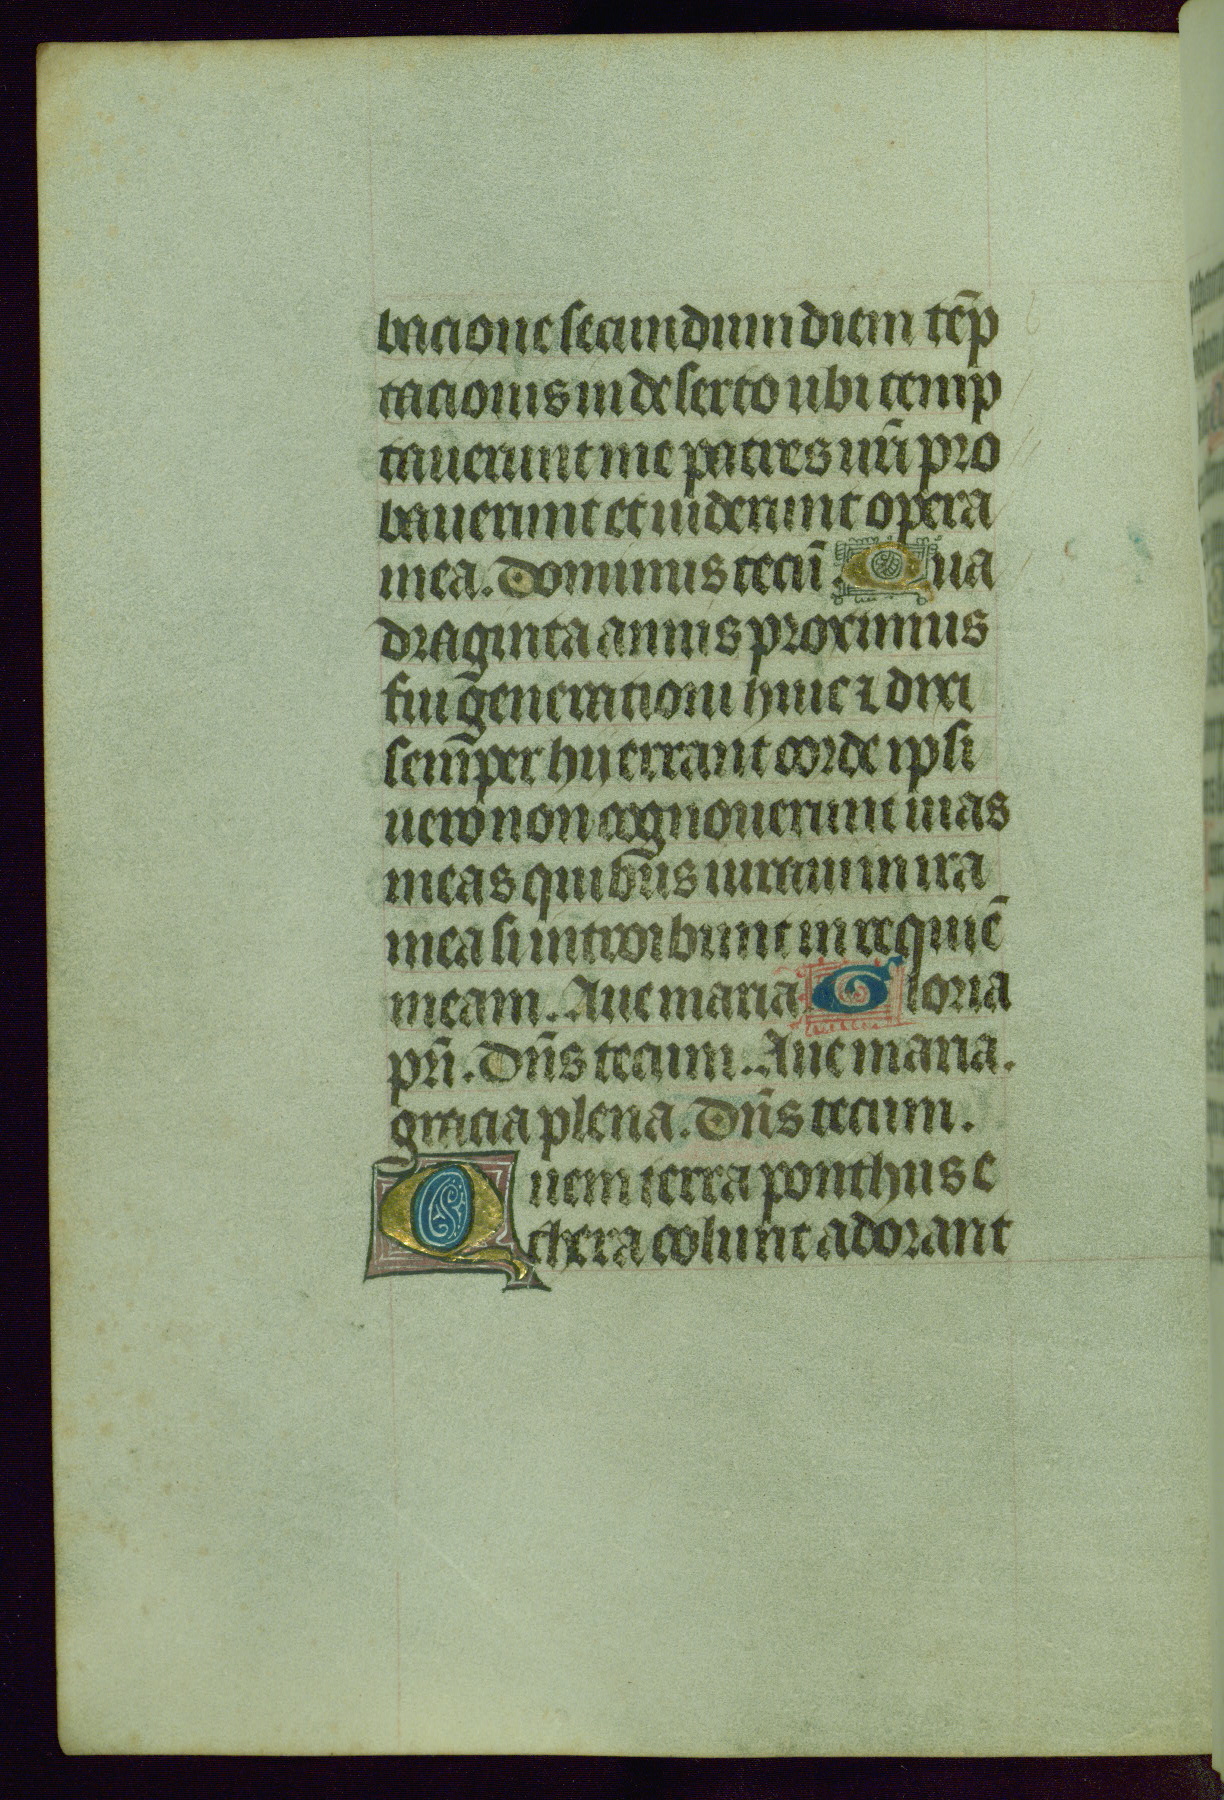 bacione secundum diem tēp
tacionis in deserto ubi temp
tauerunt me patres ur̄i pro
bauerunt et uiderunt opera
mea. Dominus tecū. Qua
draginta annis proximus
fui generationi huic ⁊ dixi
semp̄er hij errant corde ipsi
uero non cognouerunt uias
meas quibus iuraui in ira
mea si introibunt in requiē
meam. Aue maria Gloria
pr̄i. Dn̄s tecum. Aue maria.
gracia plena. Dn̄s tecum.
Quem terra ponthus e
thera colunt adorant